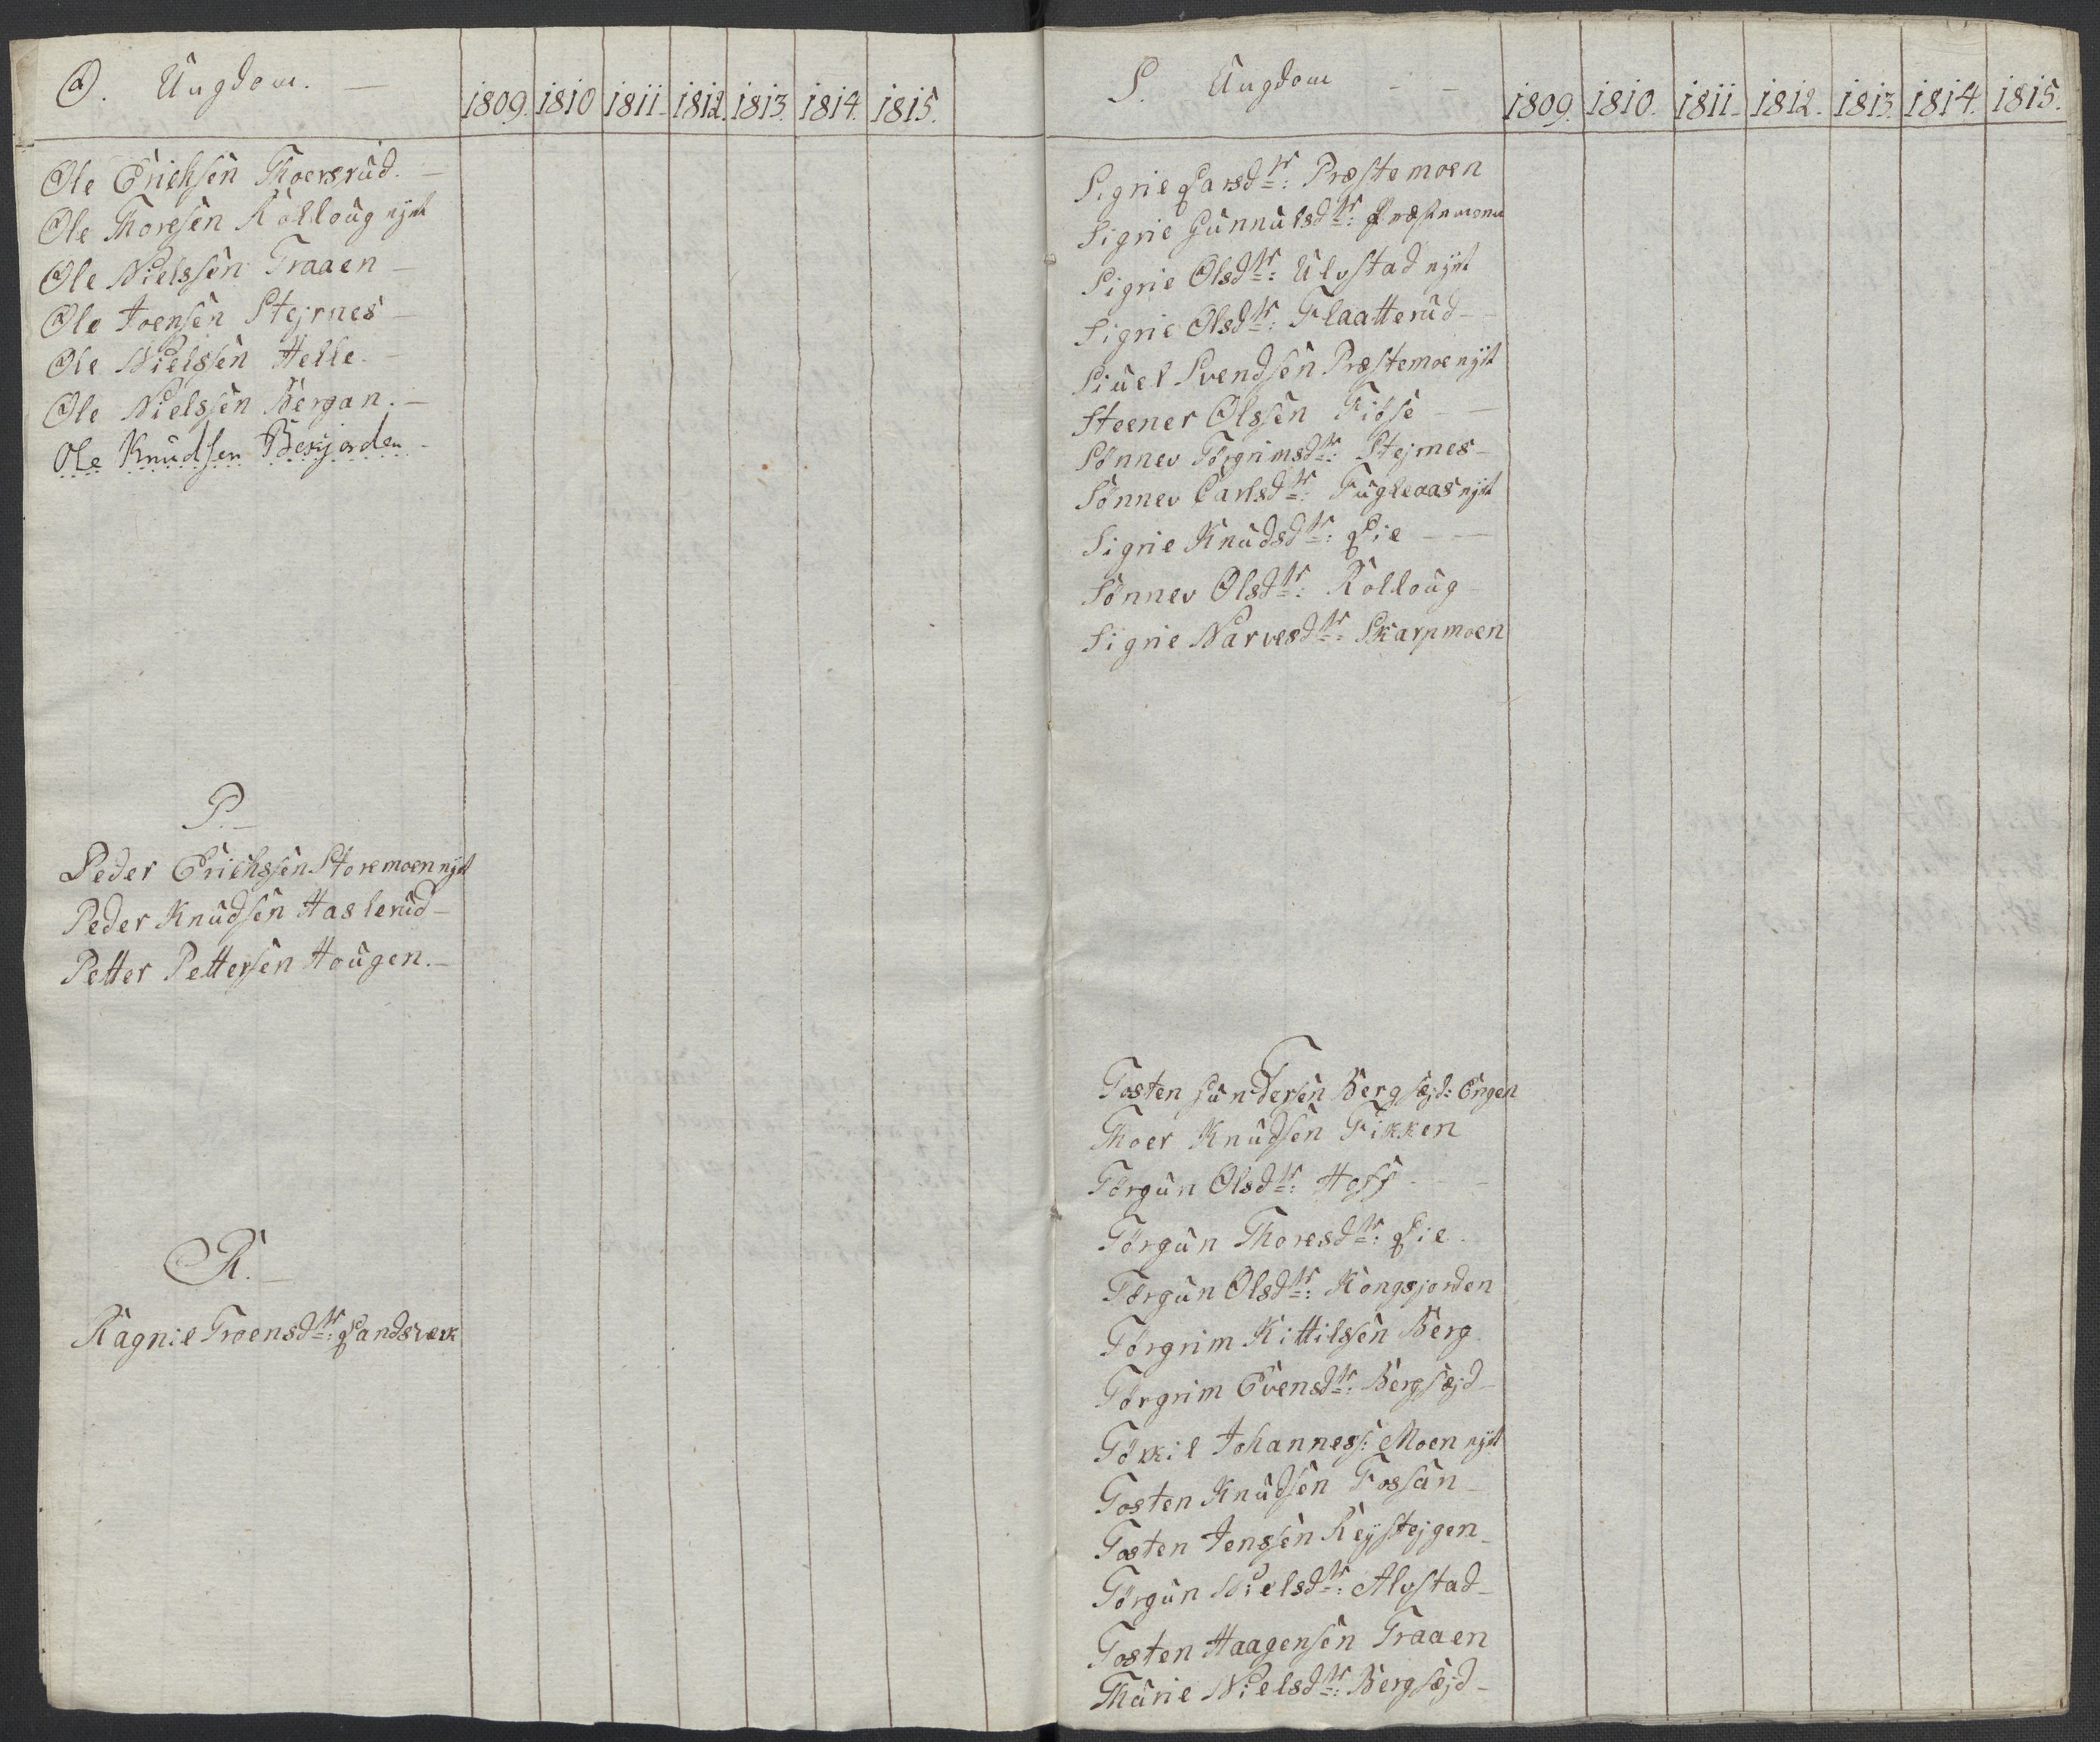 O. Ungdom. — 1809. 1810 1811. 1812. 1813. 1814. 1815.
Ole Erichsen Thoersrud. —
Ole Thoresen Rolloug nyst
Ole Nielssen Traaen —
Ole Joensen Stejrnes —
Ole Nielssen Helle. —
Ole Nielssen Bergan. —
Ole Knudsen Bekjorden —
P. —
Peder Erichssen Storemoen nyst
Peder Knudsen Haslerud —
Petter Pettersen Hougen. —
R. —
Ragnil Troensdtr: Landsværk
S. Ungdom — — 1809. 1810. 1811. 1812. 1813. 1814. 1815.
Sigrie Larsdtr: Præstemoen
Sigrie Gunnulsdtr:
Sigrie Olsdtr: Ulvstad nyst
Sigrie Olsdtr: Flaatterud —
Siuel Svendsen Præstemoe nyst
Steener Olssen Fiøse — —
Sønnev Torgrimsdtr: Stejrnes —
Sønnev Carlsdtr: Fugleaas nyst
Sigrie Knudsdtr: Lie — —
Sønnev Olsdtr: Rolloug —
Sigrie Narvesdtr: Skarpmoen
T
Tosten Gundersen Bergsejd: Engen
Thoer Knudsen Fikken
Torgun Olsdtr: Hoff — —
Torgun Thoresdtr: Lie.
Torgun Olsdtr: Kongsjorden
Torgrim Kittilssen Berg.
Torgrim Evensdtr: Bergsejd —
Tokkil Johanness: Moen nyst
Tosten Knudsen Fossan —
Tosten Jenssen Røystejgen —
Torgun Nielsdtr: Alvstad —
Tosten Haagensen Traaen
Thurie Nielsdtr: Bergsejd —